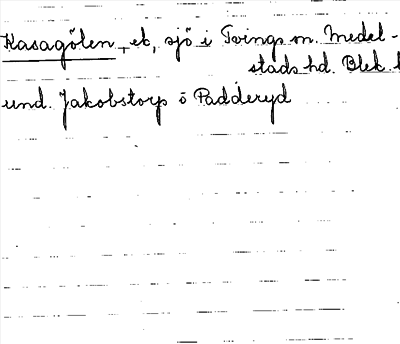 Kasagölen, ‐et, sjö i Tvings sn. Medel-
stads hd. Blek. l
und. Jakobstorp o Padderyd